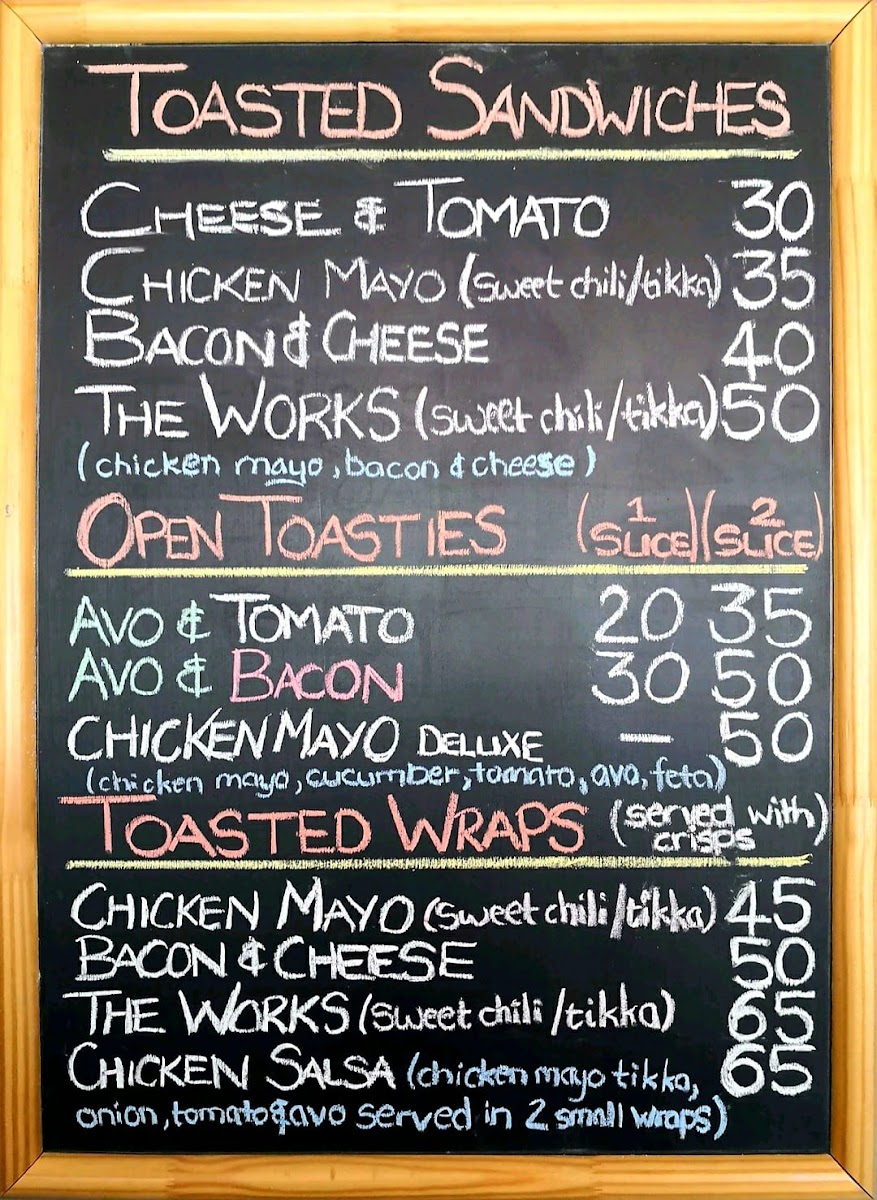 TOASTED SANDWICHES
CHEESE & TOMATO 30
CHICKEN MAYO (sweet chili/tikka) 35
BACON & CHEESE 40
THE WORKS (sweet chili/tikka) 50
(chicken mayo, bacon & cheese)
OPEN TOASTIES (1 SLICE) (2 SLICE)
AVO & TOMATO 20 35
AVO & BACON 30 50
CHICKEN MAYO DELUXE — 50
(chicken mayo, cucumber, tomato, avo, feta)
TOASTED WRAPS (served with crisps)
CHICKEN MAYO (sweet chili/tikka) 45
BACON & CHEESE 50
THE WORKS (sweet chili/tikka) 65
CHICKEN SALSA (chicken mayo tikka, 65
onion, tomato & avo served in 2 small wraps)